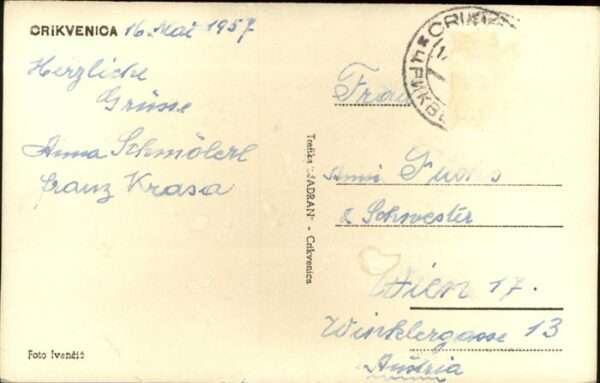 CRIKVENICA 16. Mai 1957
Herzliche
Grüsse
Anna Schmölerl
Franz Krasa
Foto Ivančić
Trafika "JADRAN" - Crikvenica
Frau
Anni Fuchs
& Schwester
Wien 17.
Winklergasse 13
Austria